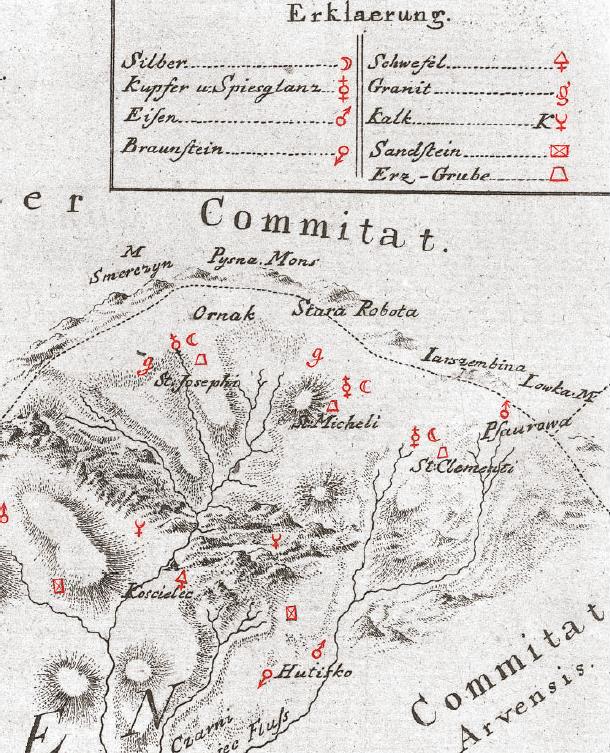 Erklaerung.
Silber
Kupfer u. Spiesglanz
Eiſen
Braunſtein
Schwefel
Granit
Kalk K
Sandſtein
Erz-Grube
er
Commitat.
M
Smerczyn
Pysna. Mons
Ornak
Stara Robota
g
g
Iarszembina
Lowka. M
St. Joſephi
St. Micheli
Pſaurowa
St Clementi
Koscielec
Hutiſko
Commitat
Arvensis.
EN
Czarni
Fluſs